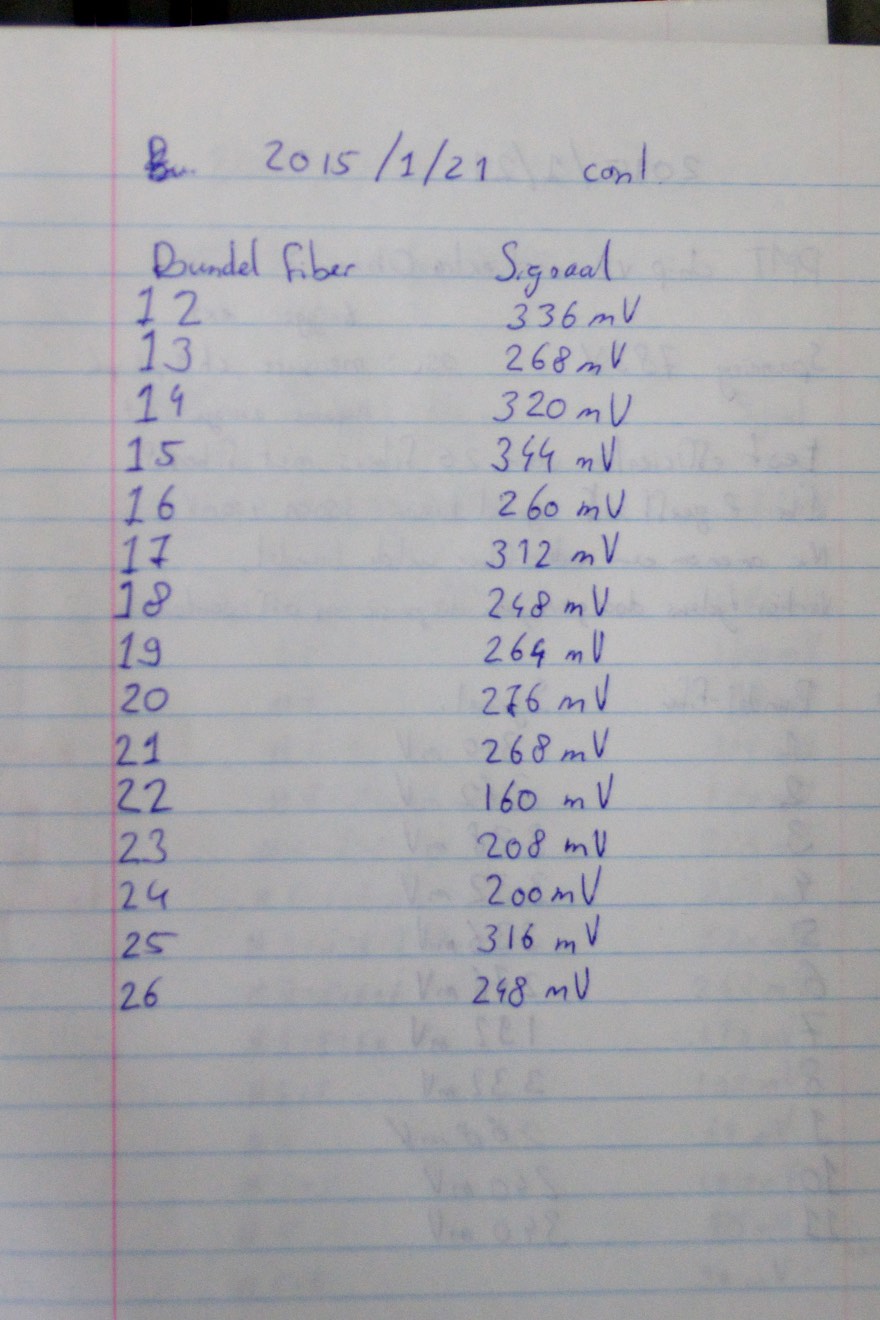 2015/1/21 cont.
Bundel fiber Signaal
12 336 mV
13 268 mV
14 320 mV
15 344 mV
16 260 mV
17 312 mV
18 248 mV
19 264 mV
20 276 mV
21 268 mV
22 160 mV
23 208 mV
24 200 mV
25 316 mV
26 248 mV